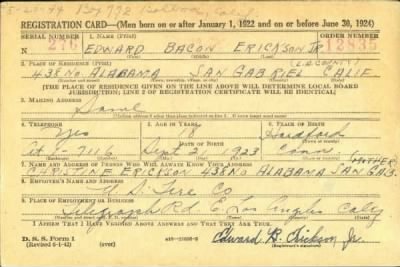 REGISTRATION CARD—(Men born on or after January 1, 1922 and on or before June 30, 1924)
SERIAL NUMBER 1. NAME (Print) ORDER NUMBER
276 EDWARD BACON ERICKSON JR. 12835
(First) (Middle) (Last)
2. PLACE OF RESIDENCE (Print) (L.A. COUNTY)
438 NO ALABAMA SAN GABRIEL CALIF
[THE PLACE OF RESIDENCE GIVEN ON THE LINE ABOVE WILL DETERMINE LOCAL BOARD
JURISDICTION; LINE 2 OF REGISTRATION CERTIFICATE WILL BE IDENTICAL]
3. MAILING ADDRESS
Same
4. TELEPHONE 5. AGE IN YEARS 6. PLACE OF BIRTH
Yes 18 Hartford
At 8-7116 Sept 2 1923 Conn
7. NAME AND ADDRESS OF PERSON WHO WILL ALWAYS KNOW YOUR ADDRESS (MOTHER)
CHRISTINE ERICKSON 438 NO ALABAMA SAN GAB.
8. EMPLOYER'S NAME AND ADDRESS
U.S. Tire Co
9. PLACE OF EMPLOYMENT OR BUSINESS
Telegraph Rd. E. Los Angeles Calif
I AFFIRM THAT I HAVE VERIFIED ABOVE ANSWERS AND THAT THEY ARE TRUE.
D. S. S. Form 1
(Revised 6-1-42) Edward B. Erickson, Jr.
(Registrant's signature)